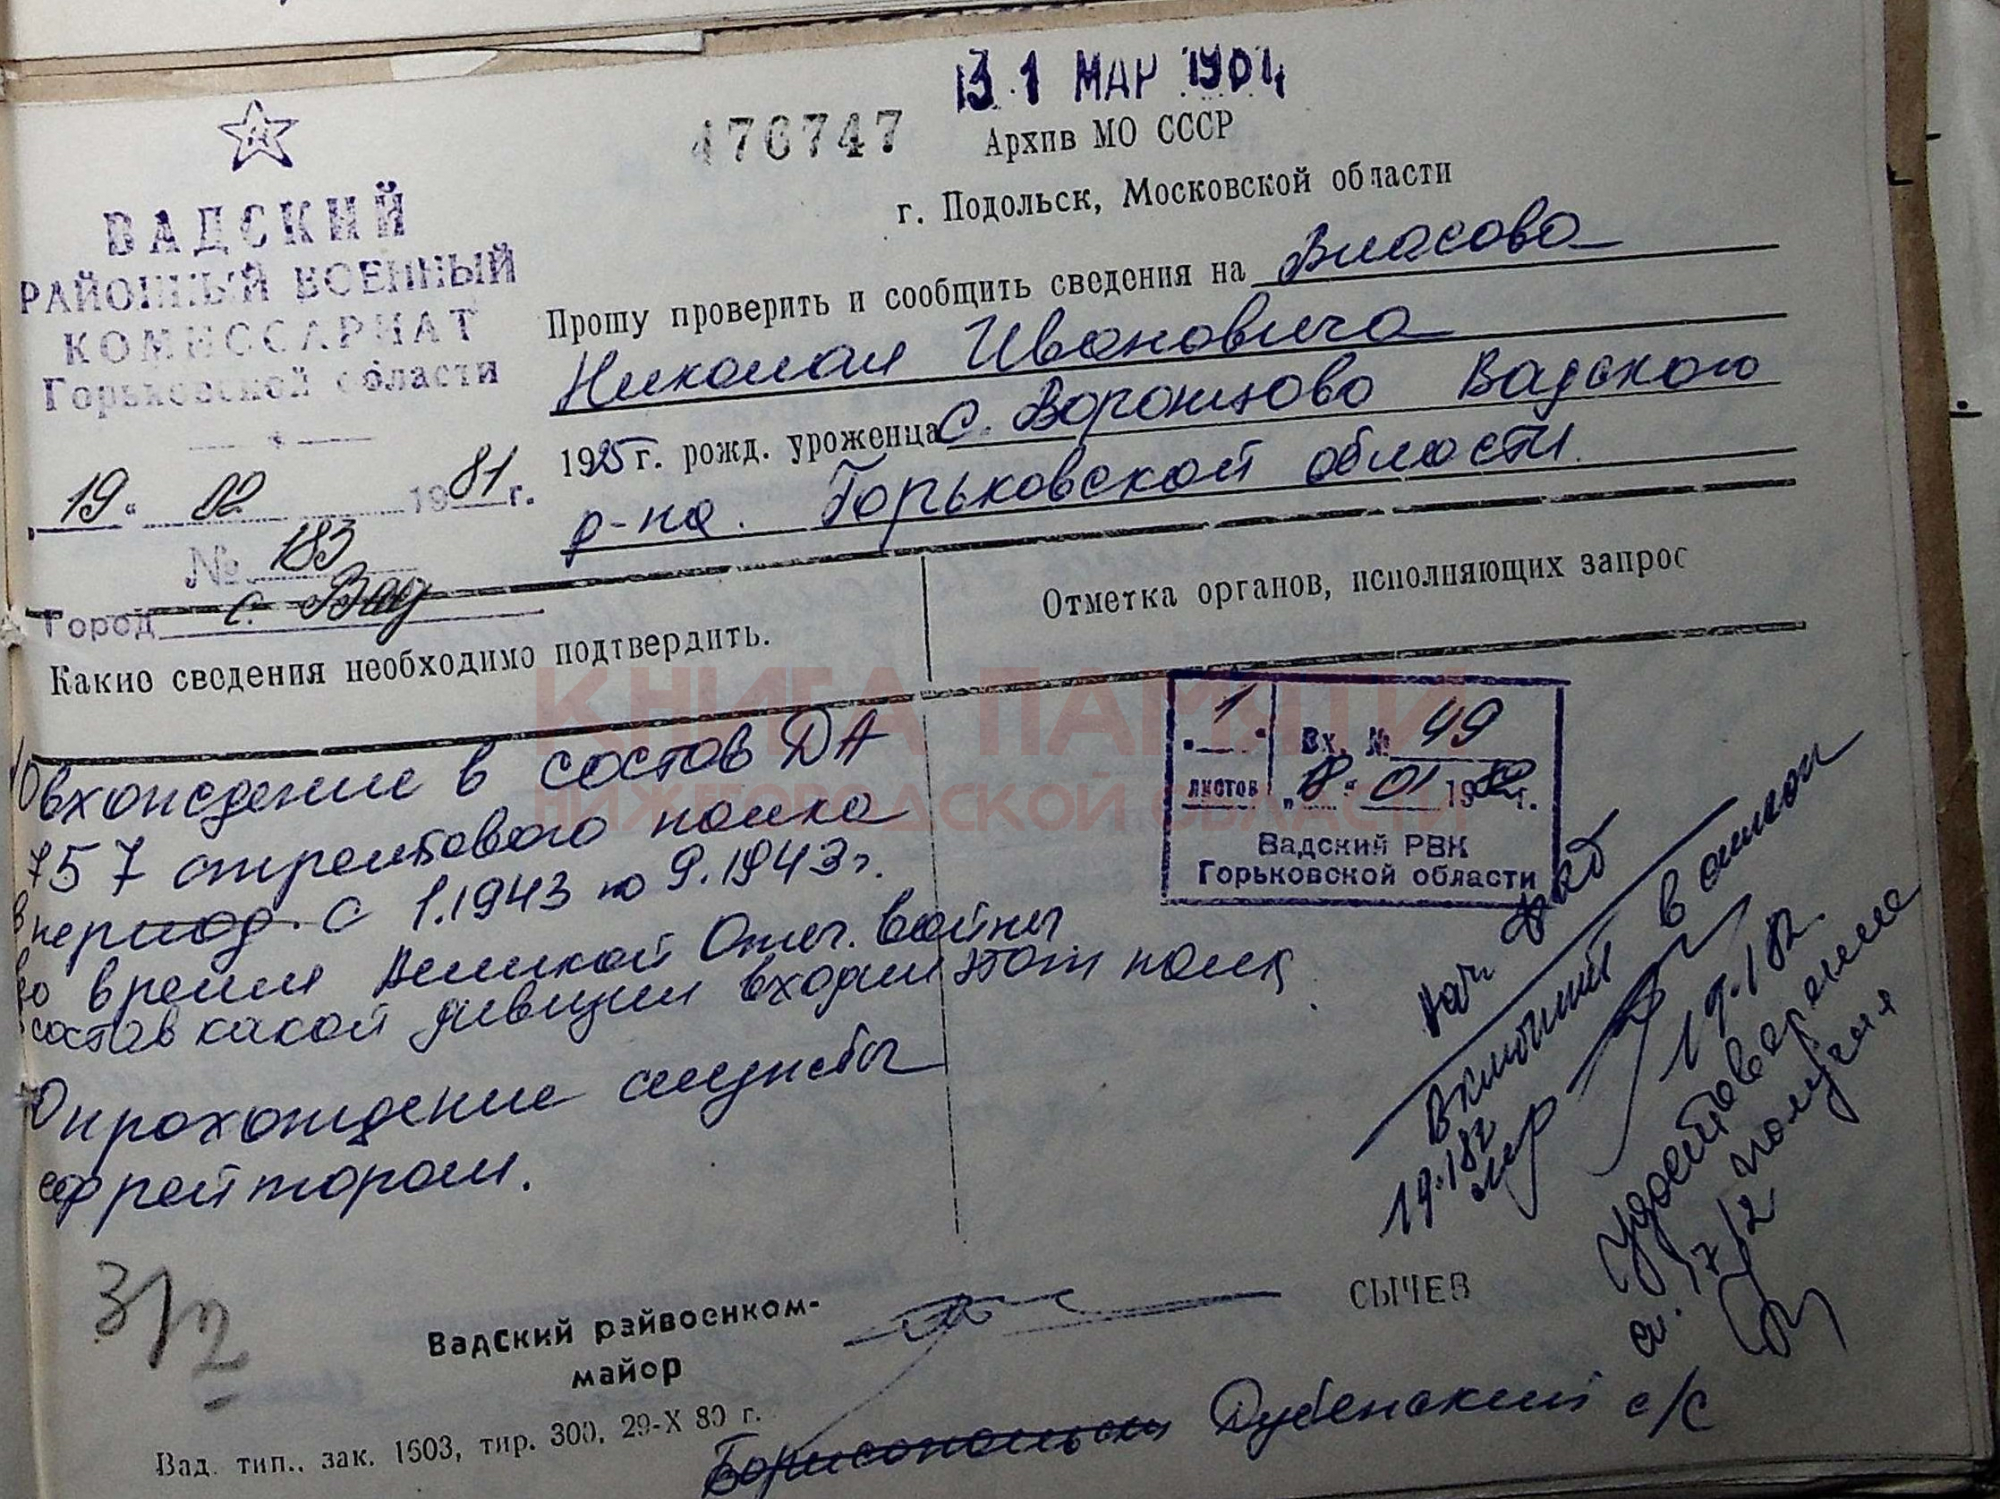 31 МАР
476747
Архив МО СССР
г. Подольск, Московской области
ВАДСКИЙ
РАЙОННЫЙ ВОЕННЫЙ
КОМИССАРИАТ
Горьковской области
19 " 02 1981 г.
№ 183
Город с. Вад
Прошу проверить и сообщить сведения на Власова
Николая Ивановича
1925 г. рожд. уроженца с. Воронцово Вадского
р-на. Горьковской области.
Какие сведения необходимо подтвердить.
Отметка органов, исполняющих запрос
1) вхождение в состав ДА
757 стрелкового полка
в период с 1.1943 по 9.1943 г.
во время Великой Отеч. войны
состав какой дивизии входил этот полк
прохождение службы
ефрейтором.
1 листов
Вх. № 49
" 18 " 01 1982 г.
Вадский РВК
Горьковской области
Нач
Включить в список
19.1.82
19.1.82
Удостоверение
получил
3/2
Вадский райвоенком-
майор
СЫЧЕВ
Вад. тип., зак. 1503, тир. 300, 29-X 80 г.
Дубенский с/с
КНИГА ПАМЯТИ
НИЖЕГОРОДСКОЙ ОБЛАСТИ